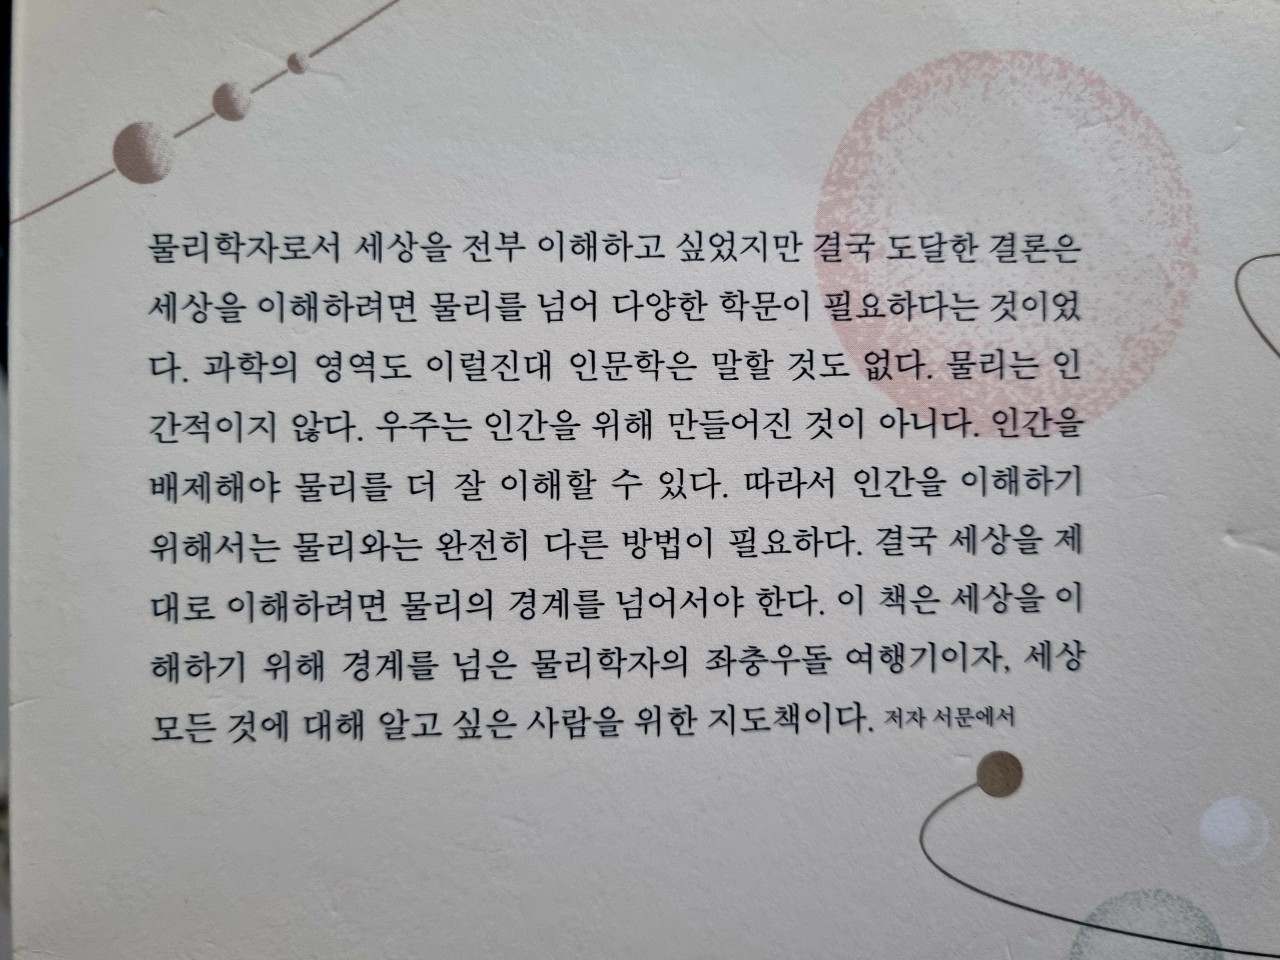 물리학자로서 세상을 전부 이해하고 싶었지만 결국 도달한 결론은
세상을 이해하려면 물리를 넘어 다양한 학문이 필요하다는 것이었
다. 과학의 영역도 이럴진대 인문학은 말할 것도 없다. 물리는 인
간적이지 않다. 우주는 인간을 위해 만들어진 것이 아니다. 인간을
배제해야 물리를 더 잘 이해할 수 있다. 따라서 인간을 이해하기
위해서는 물리와는 완전히 다른 방법이 필요하다. 결국 세상을 제
대로 이해하려면 물리의 경계를 넘어서야 한다. 이 책은 세상을 이
해하기 위해 경계를 넘은 물리학자의 좌충우돌 여행기이자, 세상
모든 것에 대해 알고 싶은 사람을 위한 지도책이다. 저자 서문에서